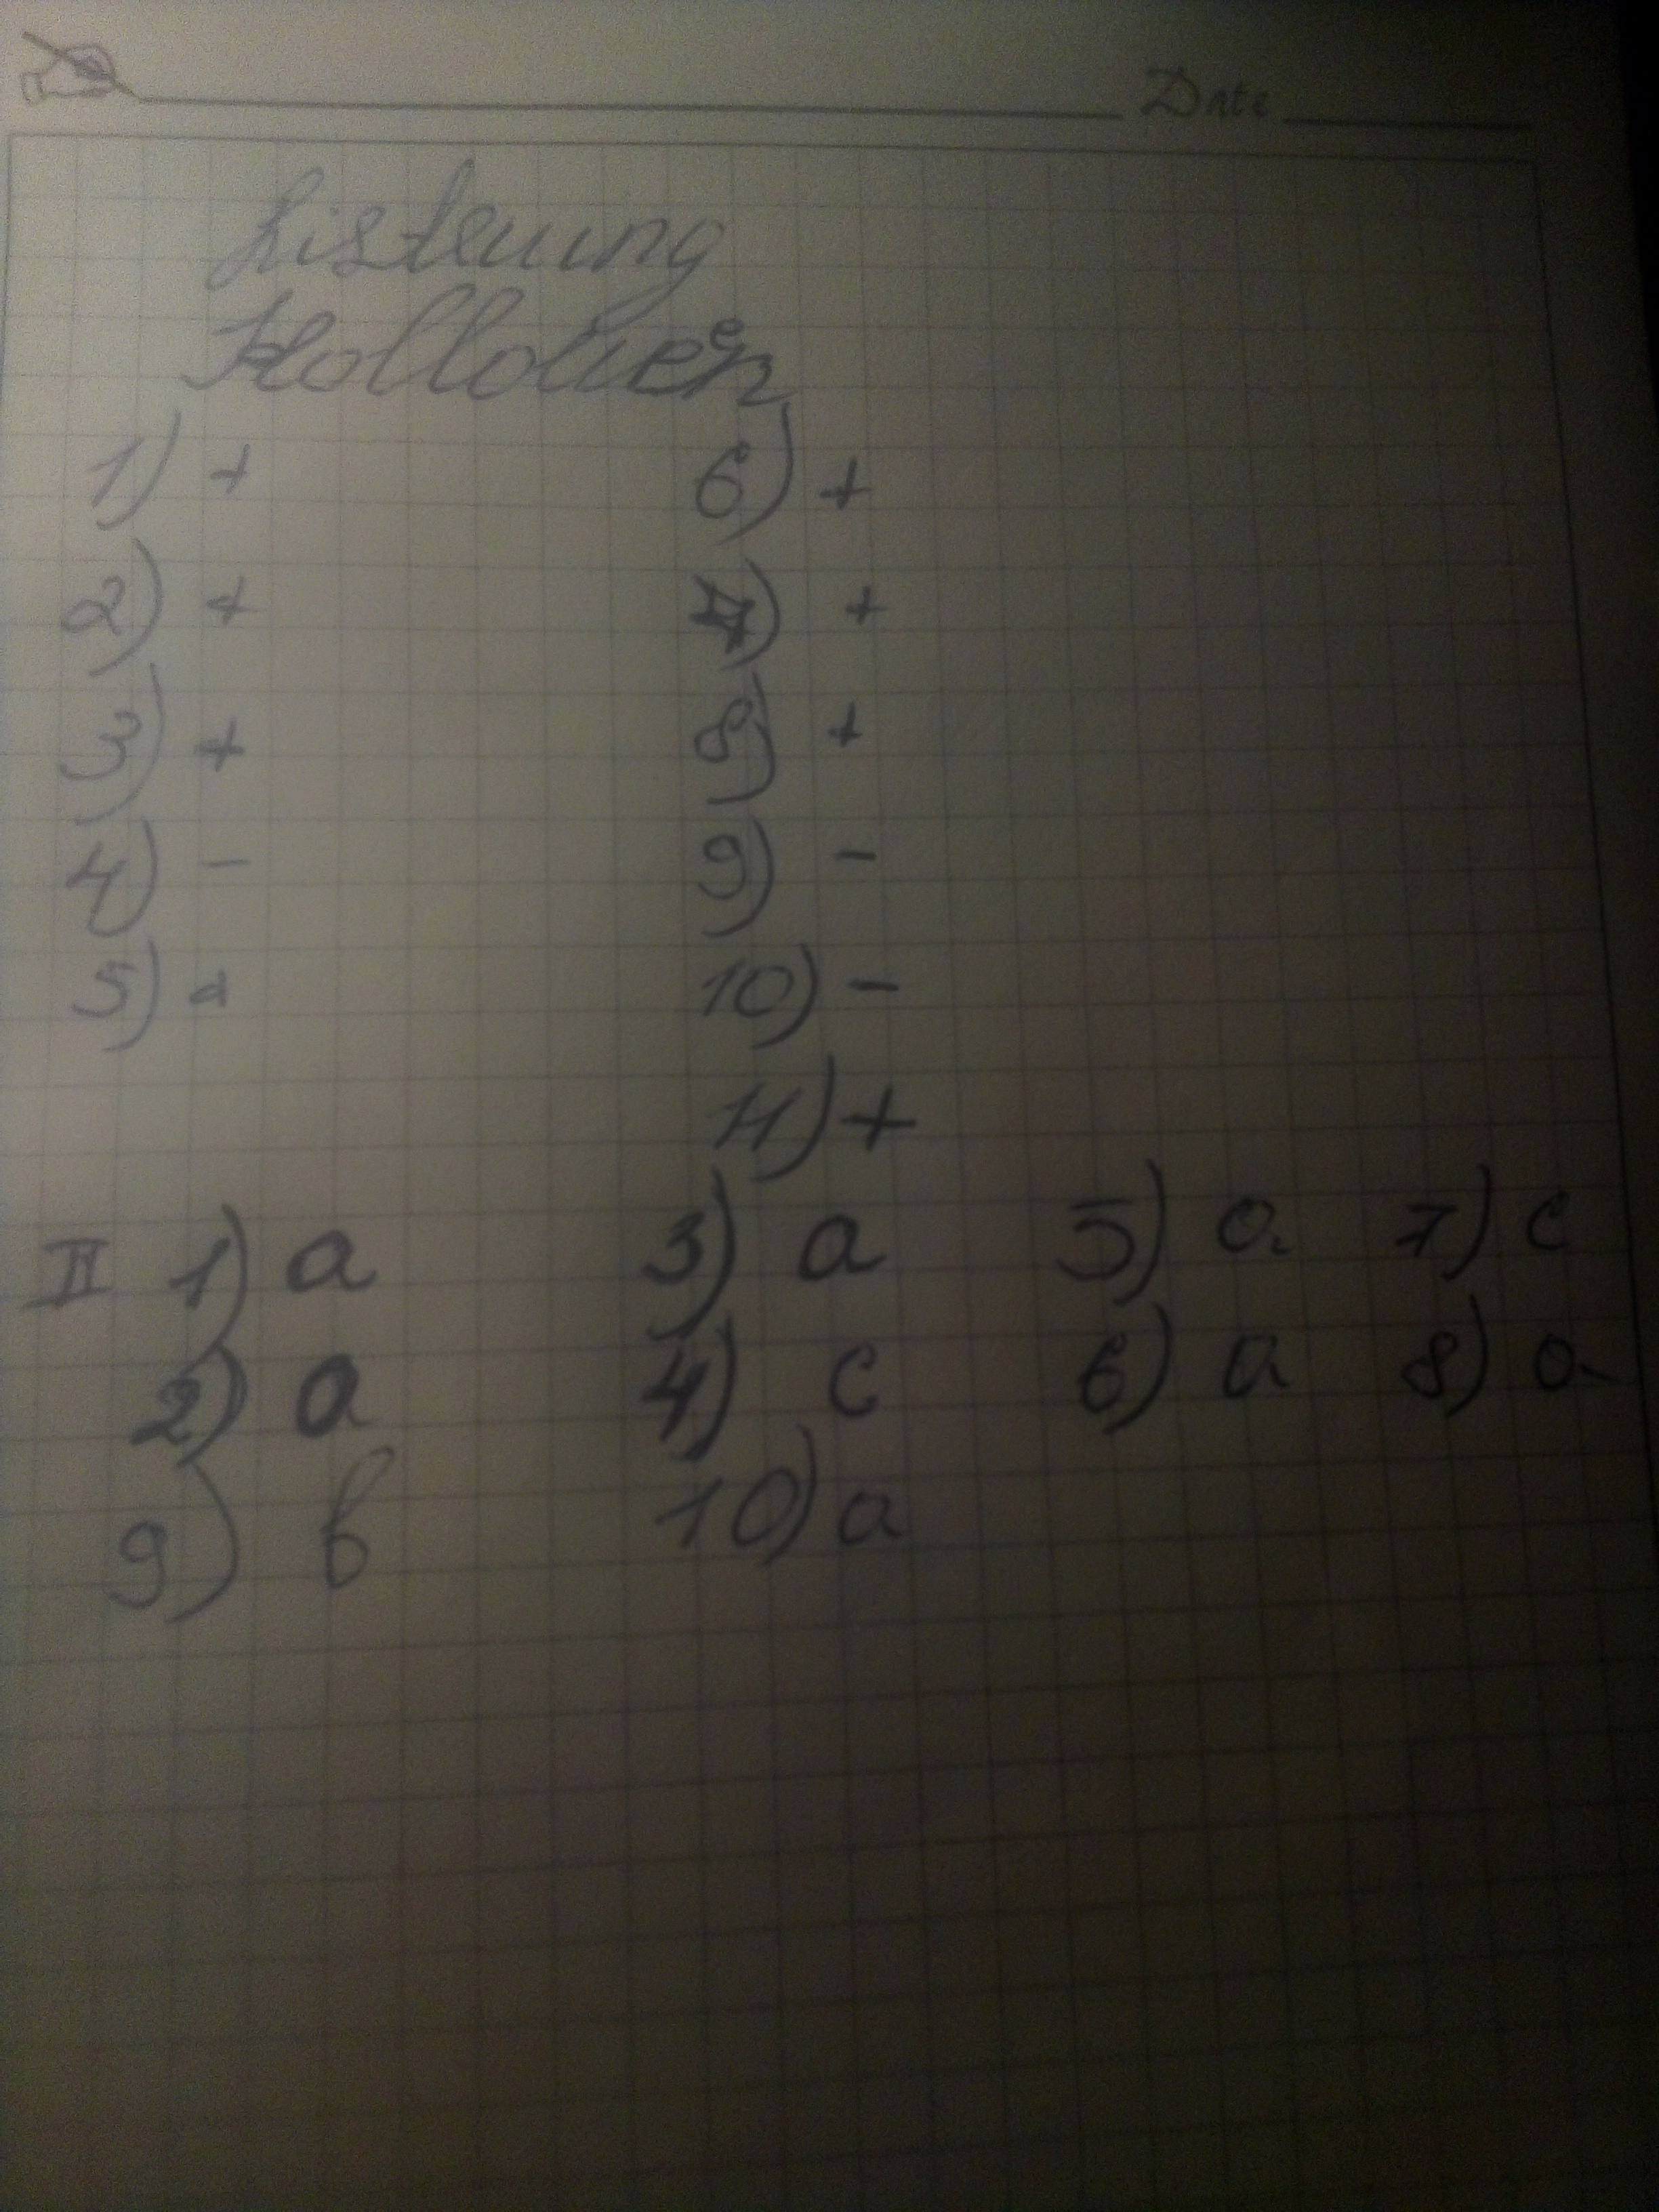 Date
Listening
1) + 6) +
2) + 7) +
3) + 8) +
4) - 9) -
5) + 10) -
11) +
II 1) a 3) a 5) a 7) c
2) a 4) c 6) a 8) a
9) b 10) a